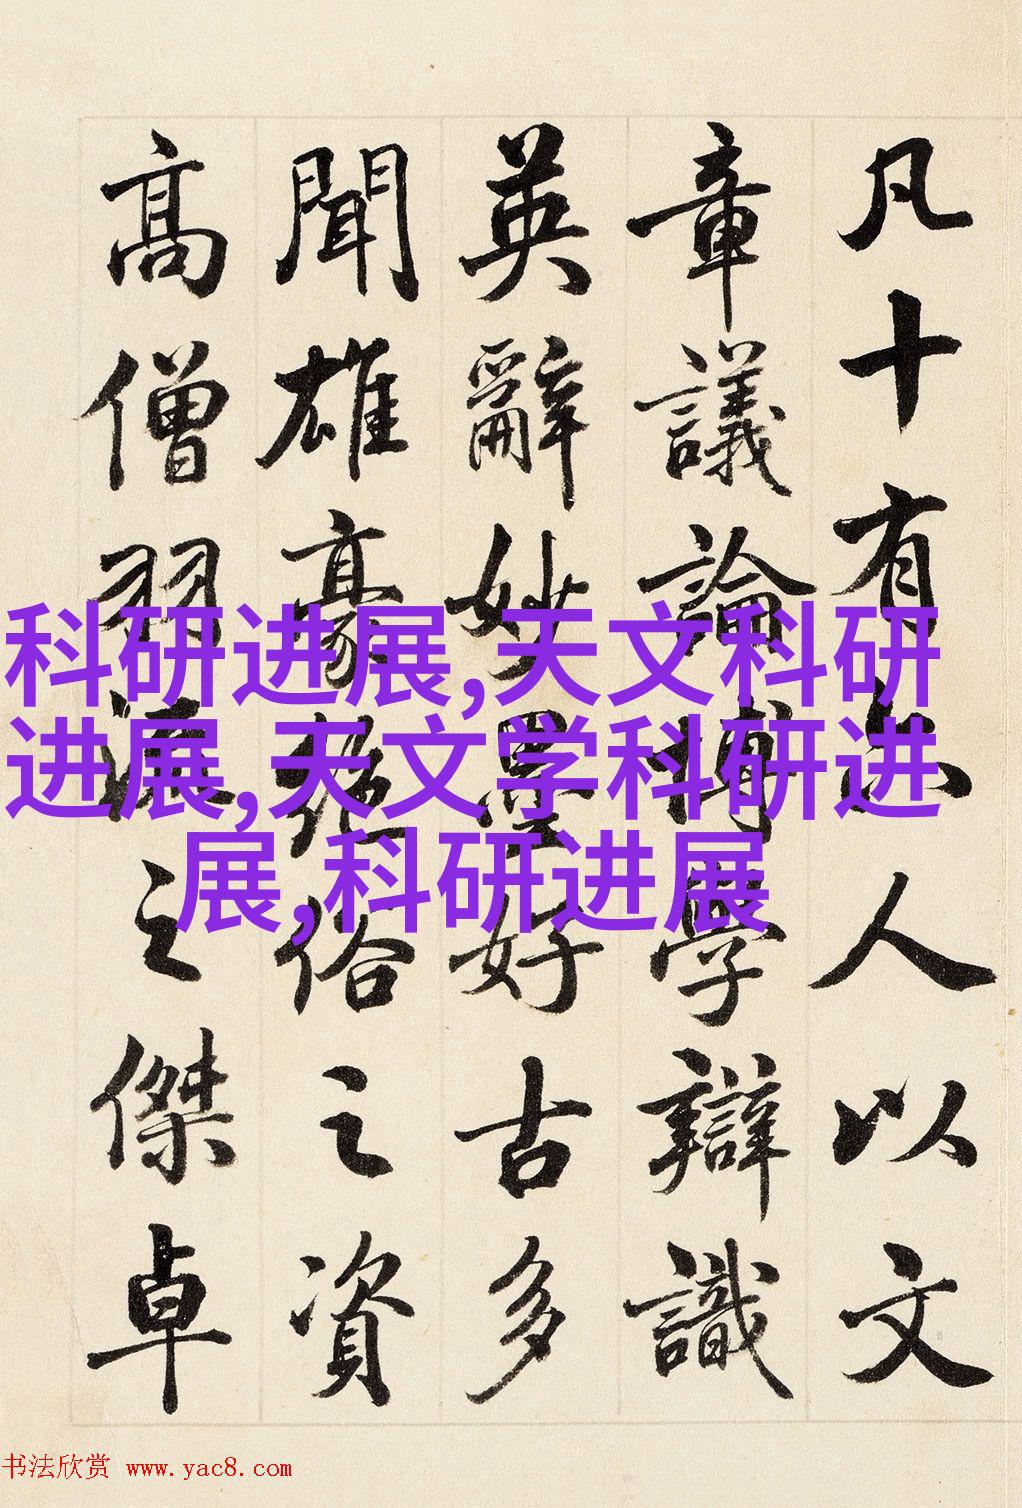 凡十有六人以文
章議論博學辯識
英辭妙墨好古多
聞雄豪絕俗之資
高僧羽流之傑卓
科研进展,天文科研
进展,天文学科研进
展,科研进展
书法欣赏 www.yac8.com